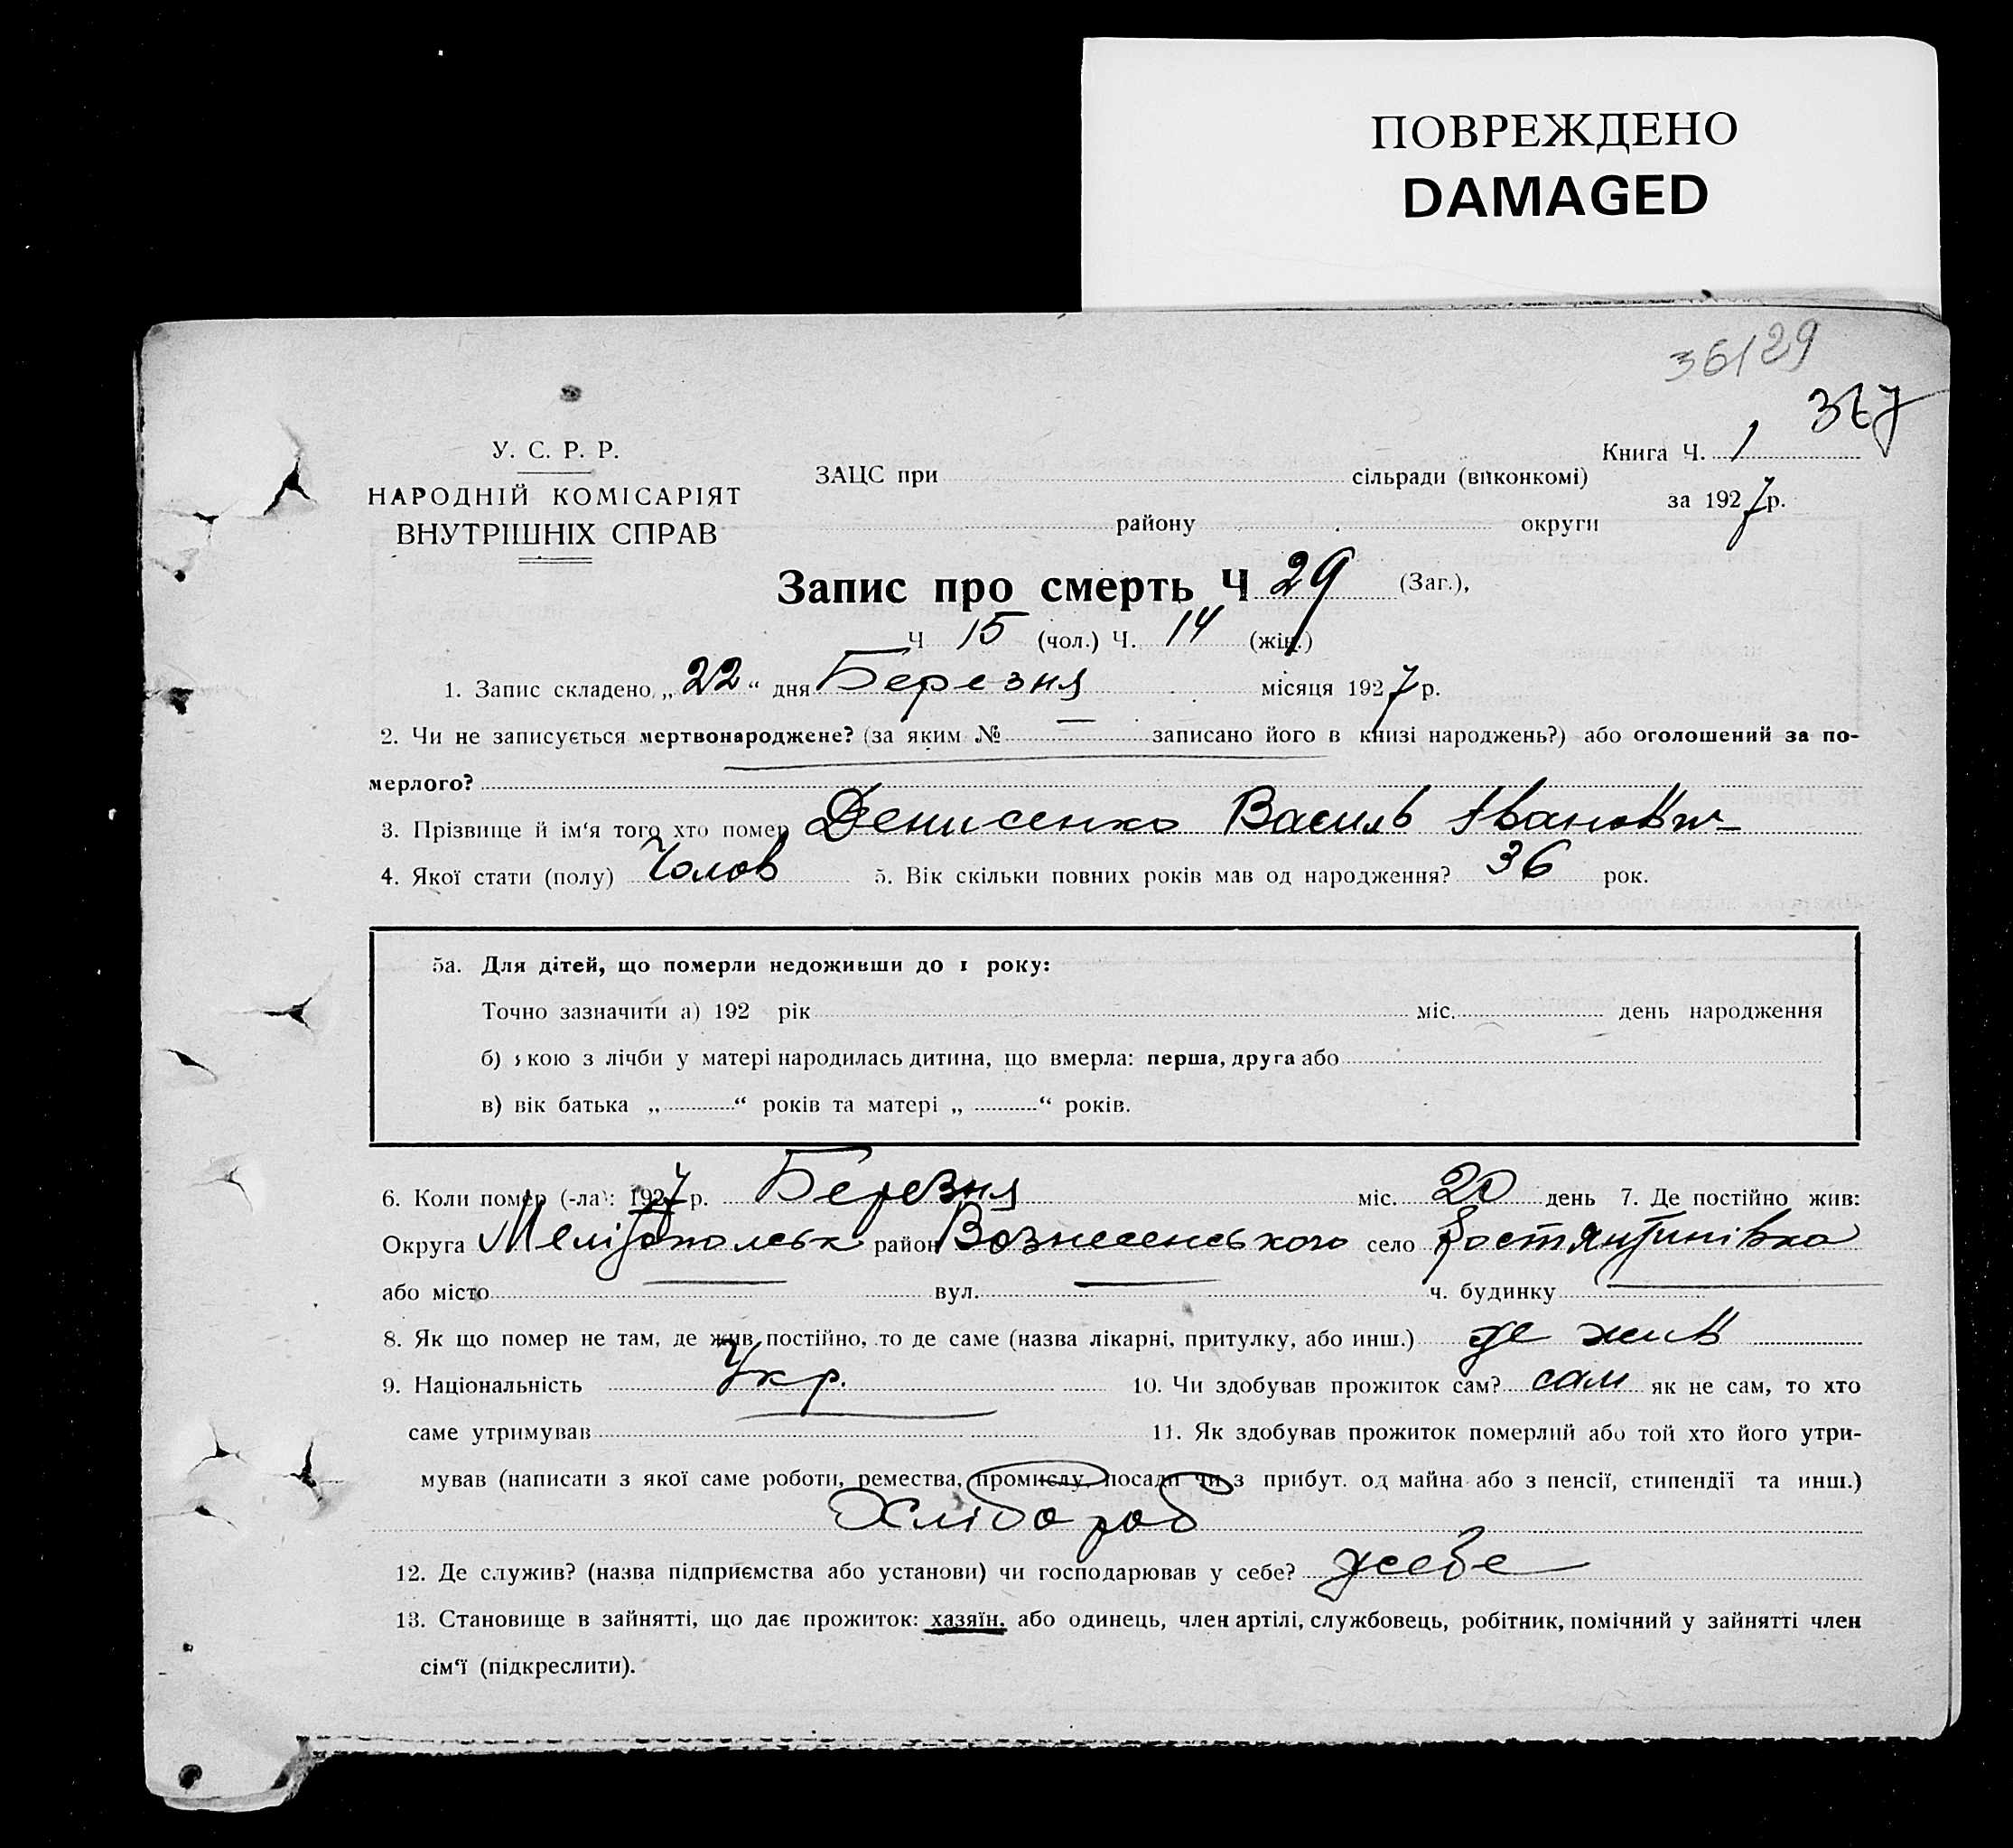 ПОВРЕЖДЕНО
DAMAGED
36/29
367
У. С. Р. Р.
НАРОДНІЙ КОМІСАРІЯТ
ВНУТРІШНІХ СПРАВ
ЗАЦС при сільради (виконкомі)
району округи
Книга Ч. 1
за 1927 р.
Запис про смерть Ч 29 (Заг.),
Ч 15 (чол.) Ч. 14 (жін.)
1. Запис складено „22“ дня Березня місяця 1927 р.
2. Чи не записується мертвонароджене? (за яким № — записано його в книзі народжень?) або оголошений за по-
мерлого?
3. Прізвище й ім‘я того хто помер Денисенко Василь Іванович
4. Якої стати (полу) Чолов 5. Вік скільки повних років мав од народження? 36 рок.
5а. Для дітей, що померли недоживши до 1 року:
Точно зазначити а) 192 рік міс. день народження
б) якою з лічби у матері народилась дитина, що вмерла: перша, друга або
в) вік батька „ “ років та матері „ “ років.
6. Коли помер (-ла): 1927 р. Березня міс. 20 день 7. Де постійно жив:
Округа Мелітопольськ район Вознесенського село Костянтинівка
або місто — вул. — ч. будинку —
8. Як що помер не там, де жив постійно, то де саме (назва лікарні, притулку, або инш.) де жив
9. Національність Укр. 10. Чи здобував прожиток сам? сам як не сам, то хто
саме утримував — 11. Як здобував прожиток померлий або той хто його утри-
мував (написати з якої саме роботи, ремества, промислу, посади чи з прибут. од майна або з пенсії, стипендії та инш.)
Хлібороб
12. Де служив? (назва підприємства або установи) чи господарював у себе? у себе
13. Становище в зайнятті, що дає прожиток: хазяїн, або одинець, член артілі, службовець, робітник, помічний у зайнятті член
сім‘ї (підкреслити).